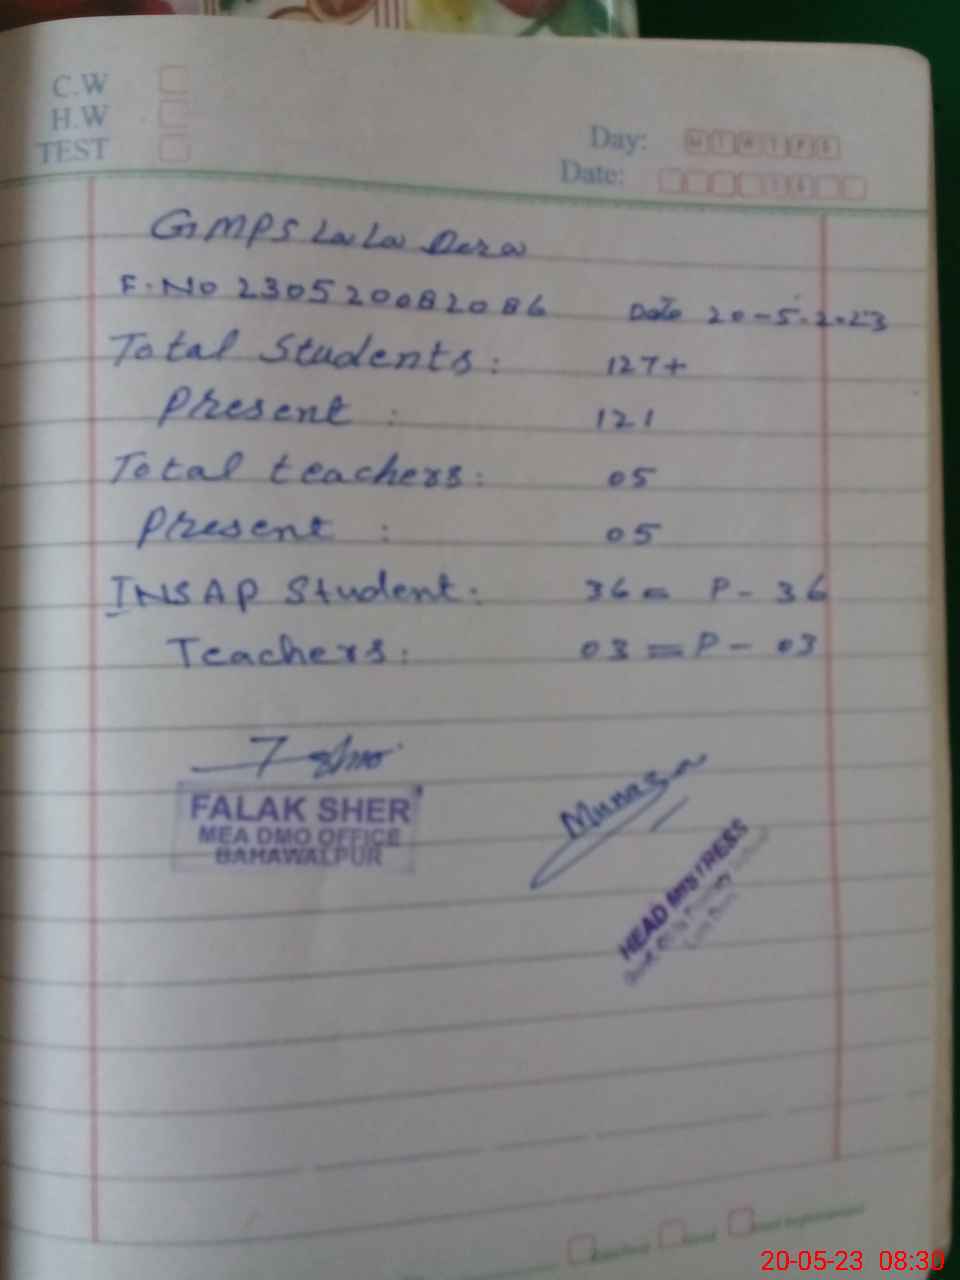 C.W
H.W
TEST
Day: M T W T F S
Date:
GMPS LaLa Dera
F.No 230520082086 Date 20-5.2023
Total Students: 127+
Present : 121
Total teachers: 05
Present : 05
INSAP Student: 36= P- 36
Teachers: 03=P- 03
FALAK SHER
MEA DMO OFFICE
BAHAWALPUR
HEAD MISTRESS
20-05-23 08:30